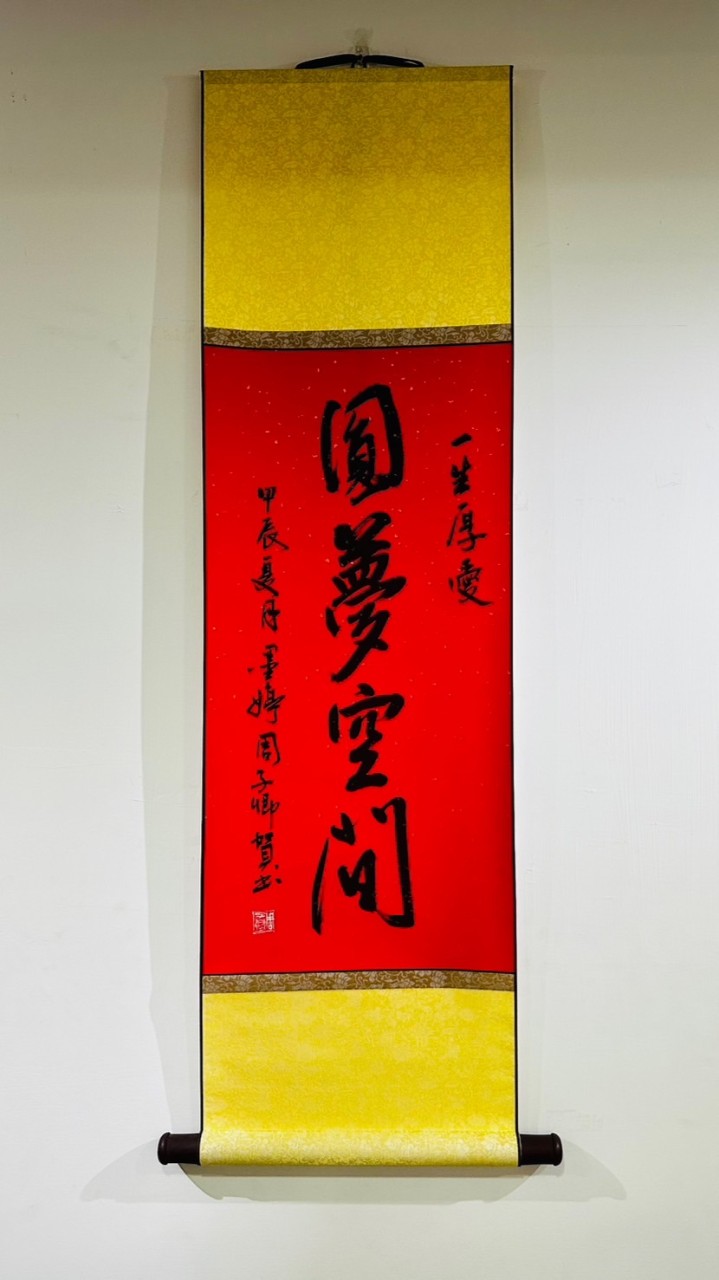 一生厚愛
圓夢空間
甲辰夏月墨婷周子卿賀書